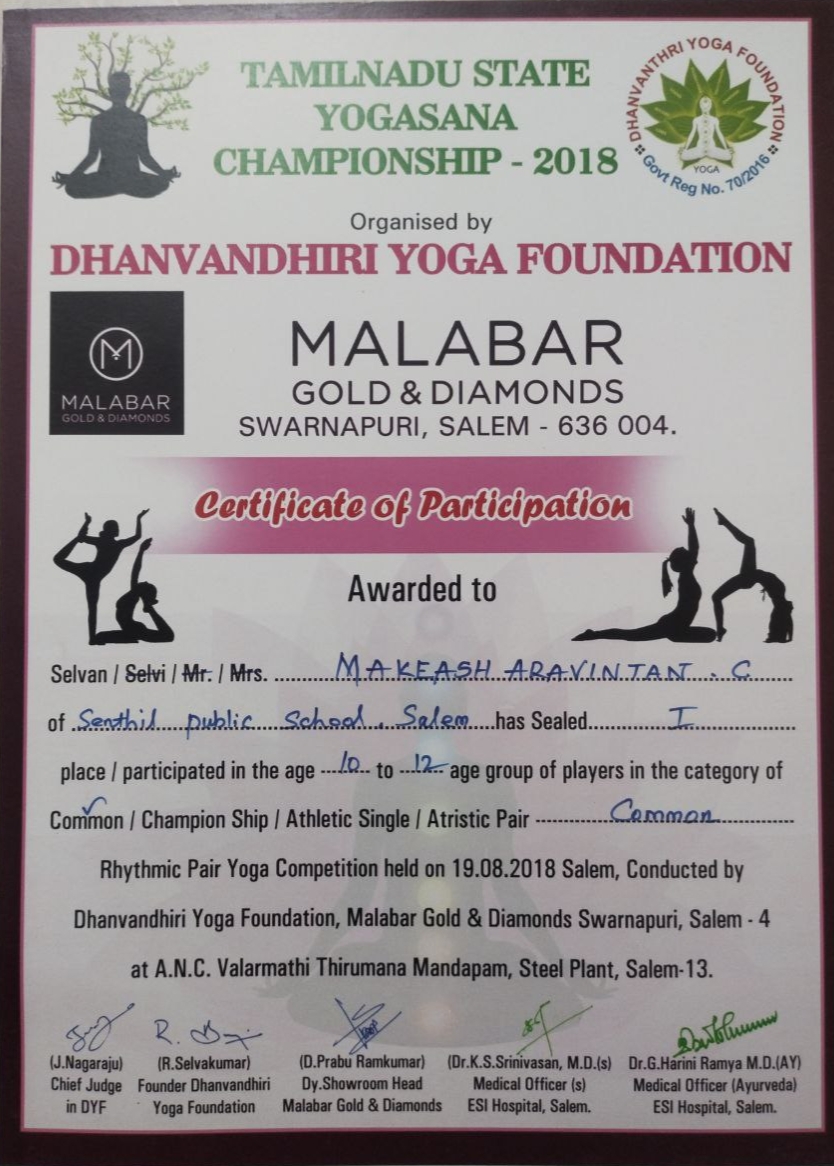 TAMILNADU STATE
YOGASANA
CHAMPIONSHIP - 2018
DHANVANTHRI YOGA FOUNDATION
YOGA
Govt Reg No. 70/2016
Organised by
DHANVANDHIRI YOGA FOUNDATION
M
MALABAR
GOLD & DIAMONDS
MALABAR
GOLD & DIAMONDS
SWARNAPURI, SALEM - 636 004.
Certificate of Participation
Awarded to
Selvan / Selvi / Mr. / Mrs. MAKEASH ARAVINTAN . C
of Senthil public School. Salem has Sealed I
place / participated in the age 10 to 12 age group of players in the category of
Common / Champion Ship / Athletic Single / Atristic Pair Common
Rhythmic Pair Yoga Competition held on 19.08.2018 Salem, Conducted by
Dhanvandhiri Yoga Foundation, Malabar Gold & Diamonds Swarnapuri, Salem - 4
at A.N.C. Valarmathi Thirumana Mandapam, Steel Plant, Salem-13.
(J.Nagaraju)
Chief Judge
in DYF
(R.Selvakumar)
Founder Dhanvandhiri
Yoga Foundation
(D.Prabu Ramkumar)
Dy.Showroom Head
Malabar Gold & Diamonds
(Dr.K.S.Srinivasan, M.D.(s)
Medical Officer (s)
ESI Hospital, Salem.
Dr.G.Harini Ramya M.D.(AY)
Medical Officer (Ayurveda)
ESI Hospital, Salem.